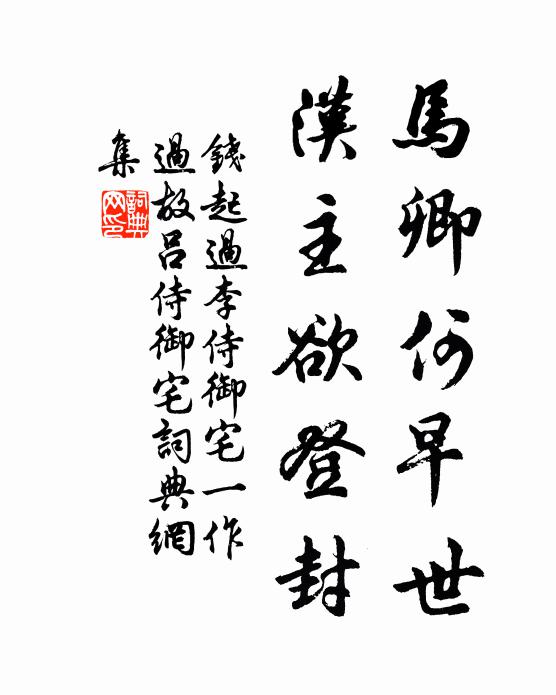 馬卿何早世
漢主欲登封
錢起過李侍御宅一作
過故吕侍御宅詞典網
集
詞典
网印